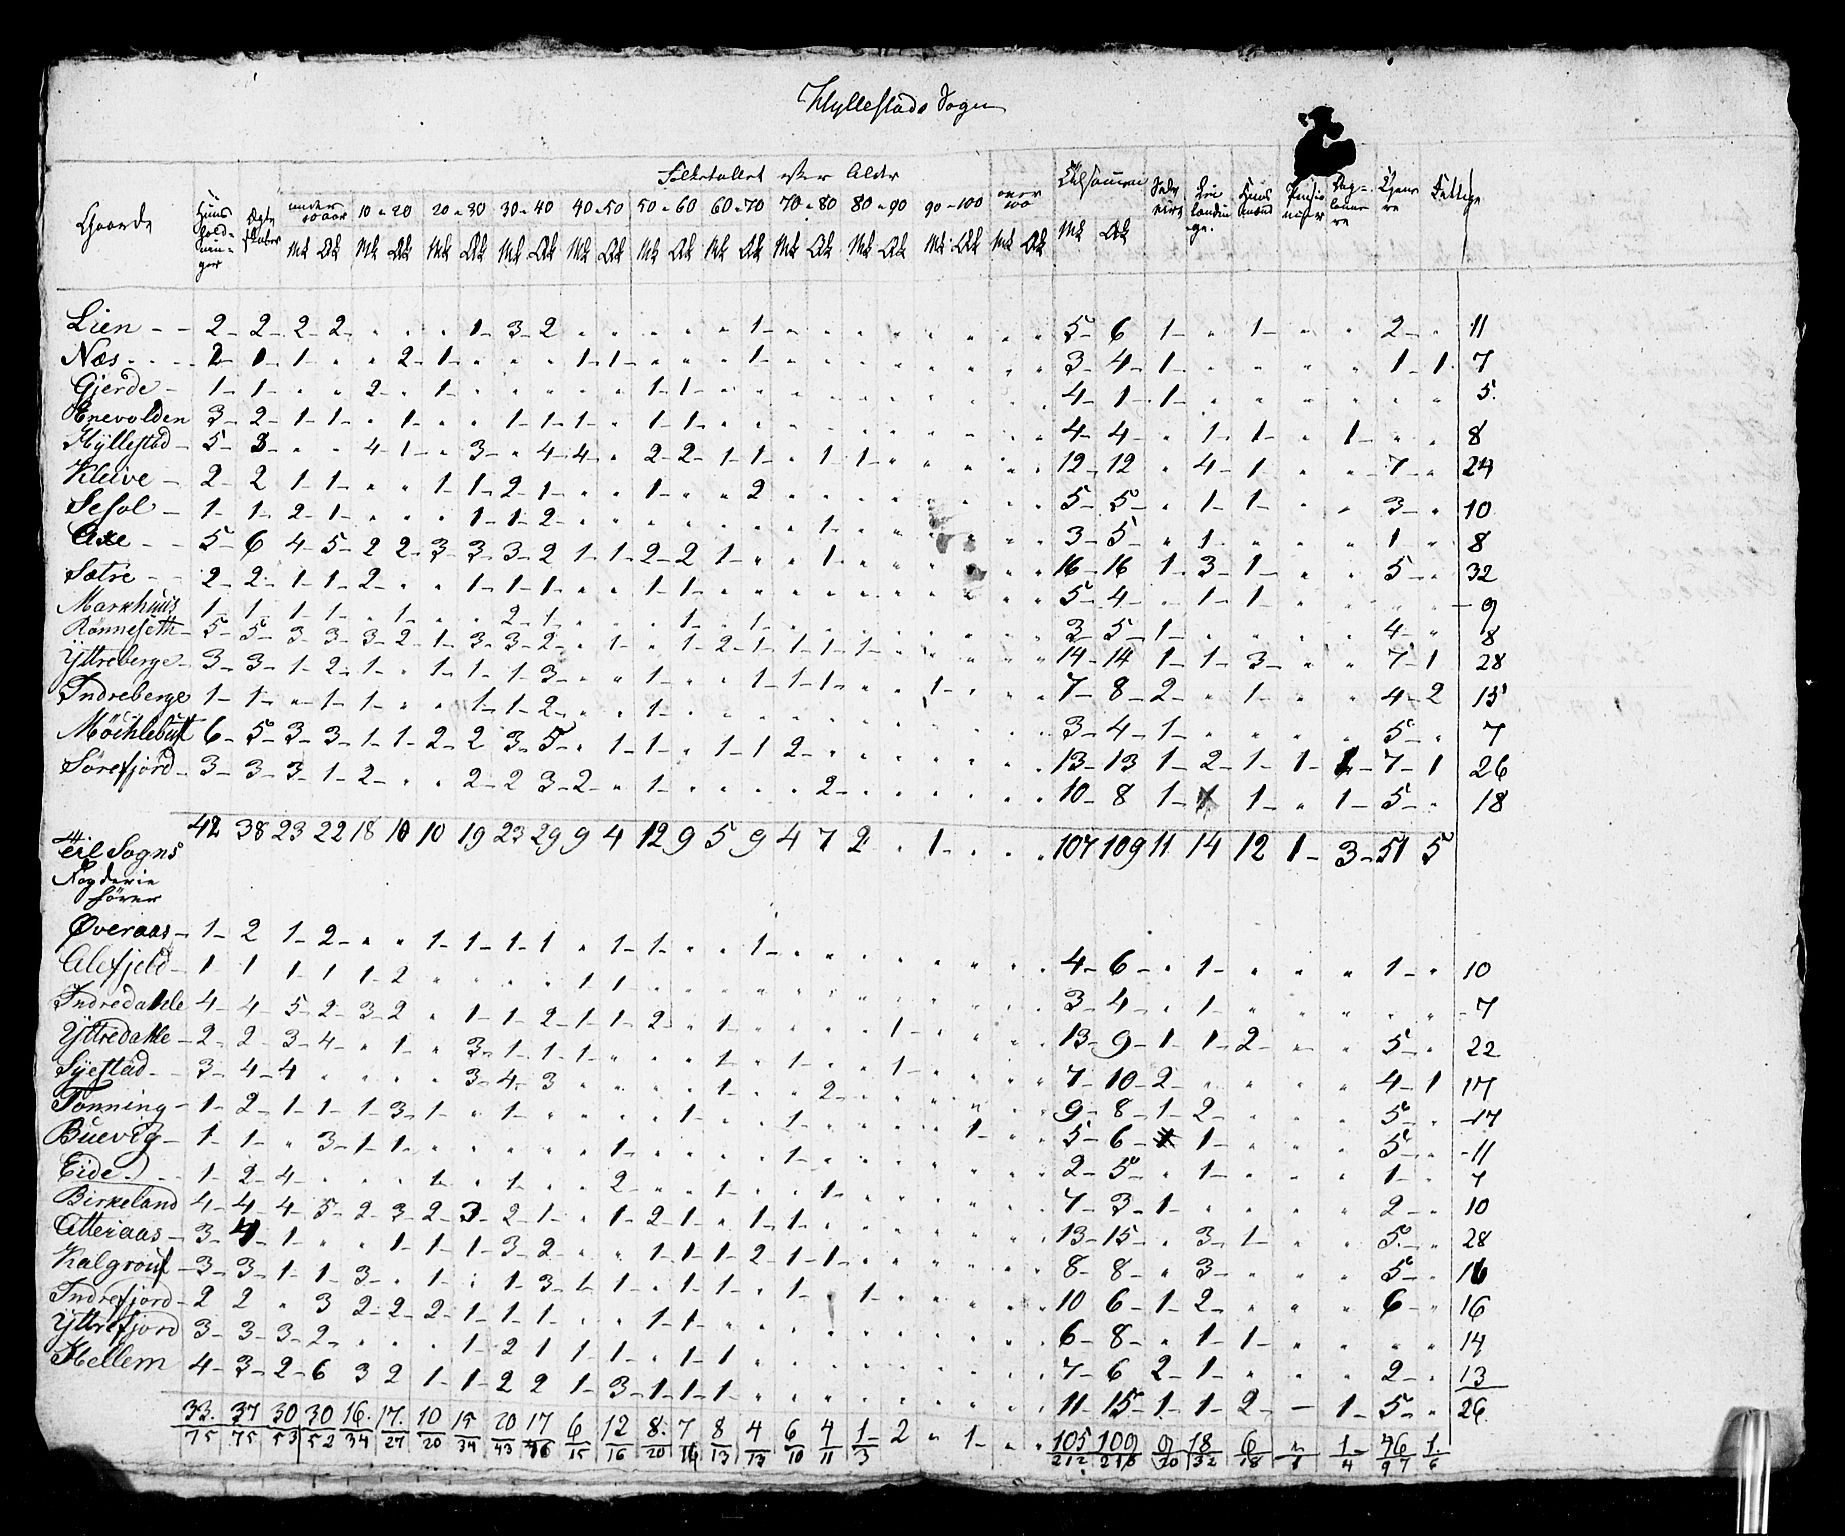 Hyllestads Sogn
Folketallet efter Alder
Gaarde Huus hold- nin- ger Ægte skaber under 10 aar 10 - 20 20 - 30 30 - 40 40 - 50 50 - 60 60 - 70 70 - 80 80 - 90 90 - 100 over 100 Tilsammen Selv eiere Lei lændin ge. Huus mænd Pensio nister Dag- lønne re Tjene re Fattige
Mk Qk Mk Qk Mk Qk Mk Qk Mk Qk Mk Qk Mk Qk Mk Qk Mk Qk Mk Qk Mk Qk Mk Qk
Lien - - 2 - 2 - 2 - 2 - " " " 1 - 3 - 2 " " " " " 1 - " " " " " " " " 5 - 6 1 - " 1 - " " 2 - " 11
Næs - - - 2 - 1 - 1 - " " 2 - 1 - " " " 1 - 1 - " " " 1 - " " " " " " " " 3 - 4 - 1 - " " " " 1 - 1 - 7
Gjerde - 1 - 1 - " " 2 - " 1 - " " " " " 1 - 1 - " " " " " " " " " " 4 - 1 - 1 - " " " " " " 5
Enevolden 3 - 2 - 1 - 1 - " 1 - " " 1 - 1 - 1 - " 1 - 1 - " " " " " " " " " " 4 - 4 - " 1 - 1 - " 1 - " " 8
Hyllestad - 5 - 3 - " " 4 - 1 - " 3 - " 4 - 4 - " 2 - 2 - 1 - 1 - " 1 - 1 - " " " " " 12 - 12 " 4 - 1 - " " 7 - " 24
Kleive - 2 - 2 1 - 1 - " " 1 - 1 - 2 - 1 - " " 1 - " " 2 " " " " " " " " 5 - 5 - " 1 - 1 - " " 3 - " 10
Sesol - 1 - 1 - 2 - 1 - " " " 1 - 1 - 2 - " " " " " " " 1 - " " " " " " 3 - 5 - " 1 - " " " 1 " 8
Axe - - 5 - 6 4 - 5 - 2 2 - 3 3 - 3 - 2 1 - 1 - 2 - 2 1 - " " 1 - " " " " " " 16 - 16 1 - 3 - 1 - " " 5 - " 32
Sætre - - 2 - 2 - 1 - 1 - 2 - " " 1 - 1 - 1 - " " 1 - 1 - " " " " " " " " " " 5 - 4 - " 1 - 1 - " " " " - 9
Markhuus 1 - 1 - 1 - 1 - " 1 - " " 2 - 1 - " " " 1 - " 1 - " " " " " " " " 3 - 5 - 1 - " " " " 4 - " 8
Rönneseth - 5 - 5 - 3 - 3 - 3 - 2 - 1 - 3 - 3 - 2 - " 1 - " 1 - 2 - 1 - 1 - 1 - 1 - " " " " " 14 - 14 1 - 1 - 3 - " " 7 - 1 28
Yttreberge - 3 - 3 - 1 - 2 - 1 - " 1 - 1 - 1 - 3 - " " 1 - " " 1 - 1 - 1 - " " 1 - " " " 7 - 8 - 2 - " 1 - " " 4 - 2 15
Indreberge 1 - 1 - " 1 - 1 - " " 1 - 1 - 2 - " " 1 - " " " " " " " " " " " 3 - 4 - 1 - " " " " 5 - " 7
Möchlebust 6 - 5 - 3 - 3 - 1 - 1 - 2 - 2 3 - 5 - " 1 - 1 - " 1 - 1 2 - " " " " " " " 13 - 13 1 - 2 - 1 - 1 - 1 - 7 - 1 26
Sörefjord - 3 - 3 - 3 - 1 - 2 - " " 2 - 2 3 - 2 - " 1 - " " " " 2 - " " " " " " 10 - 8 1 - 1 1 - " 1 - 5 - " 18
42 38 23 22 18 10 10 19 23 29 9 4 12 9 5 9 4 7 2 " 1 - " " " 107 109 11 14 12 1 - 3 - 51 5
Til Sogns
Fogderie
hörer
Øveraas - 1 - 2 1 - 2 - " " 1 - 1 - 1 - 1 " 1 - 1 - " " 1 - " " " " " " " " 4 - 6 - " 1 - " " " 1 - " 10
Alefjeld - 1 - 1 1 - 1 1 - 2 " " " " 1 1 - " " " " " " " " " " " " 3 - 4 - " 1 - " " " " " - 7
Indredahle 4 - 4 - 5 - 2 - 3 - 2 " 1 - 1 - 2 - 1 - 1 - 2 - " 1 - " " " " 1 - " " " " 13 - 9 - 1 - 1 - 2 - " " 5 - " 22
Yttredahle - 2 - 2 - 3 - 4 - " 1 - " 3 - 1 - 1 - 1 - " " " 1 - " 1 - " " 1 - " " " " 7 - 10 - 2 - " " " " 4 - 1 17
Syestad - - 3 - 4 - 4 " " " " 3 - 4 - 3 " " " " 1 - " " 2 - " " " " " " 9 - 8 - 1 - 2 - " " " 5 - " - 17
Tonning - 1 - 2 - 1 - 1 - 1 - 3 - 1 - " 1 - " " " " 1 - " " 1 - " " " " 1 - " " 5 - 6 - 1 1 - " " " 5 - " - 11
Buevig - 1 - 1 - " 3 - 1 - 1 - " " " " " 1 - " " " " 1 - " " " " " " " 2 - 5 - " 1 - " " " 1 - " 7
Eide - - 1 - 2 - 4 - " " " 1 - " 1 - " " 2 - " " 1 - " " 1 - " " " " " " 7 - 3 - 1 - " " " " 2 - " 10
Birkeland 4 - 4 - 4 - 5 - 2 - 3 - 2 - 3 - 2 - 1 - " 1 - 2 - 1 - " 1 - 1 - " " " " " " " 13 - 15 - " 3 - 1 - " " 5 - " 28
Atteraas - 3 - 4 - 1 - " " 1 - 1 - 1 - 3 - 2 - " " 1 - 1 - 1 - 2 - 1 - 1 - " " " " " " 8 - 8 - " 3 - " " " 5 - " 16
Kalgrouf - 3 - 3 - 1 - 1 - 3 - " 1 - " 1 - 3 - 1 - 1 - " 1 - 1 - " 1 - " 1 - " " " " " 10 6 - 1 - 2 - " " " 6 - " 16
Indrefjord - 2 2 - " 3 2 - 2 - 2 - 1 - 1 - 1 - " " 1 - 1 - " " " " " " " " " " 6 - 8 - " 1 - 1 - " " " " 14
Yttrefjord 3 - 3 - 3 - 2 - " " " 1 - 2 1 1 1 - " 1 - 1 - " " " " " " " " " 7 - 6 2 - 1 - " " " 2 - " 13
Hellem 4 - 3 - 2 - 6 3 2 1 - 1 - 2 2 1 - 3 - 1 - 1 - 1 - " " " " " " " " " 11 - 15 - 1 - 1 - 2 - - 1 - 5 - " 26
33. 37 30 30 16. 17. 10 15 20 17 6 12 8. 7 8 4 6 4 1 - 2 " 1 - " " 105 109 9 18 6 " 1 - 46 1.
75 75 53 52 34 27 20 34 43 46 15 16 20 16 13 13 10 11 3 212 218 20 32 18 1 4 97 6